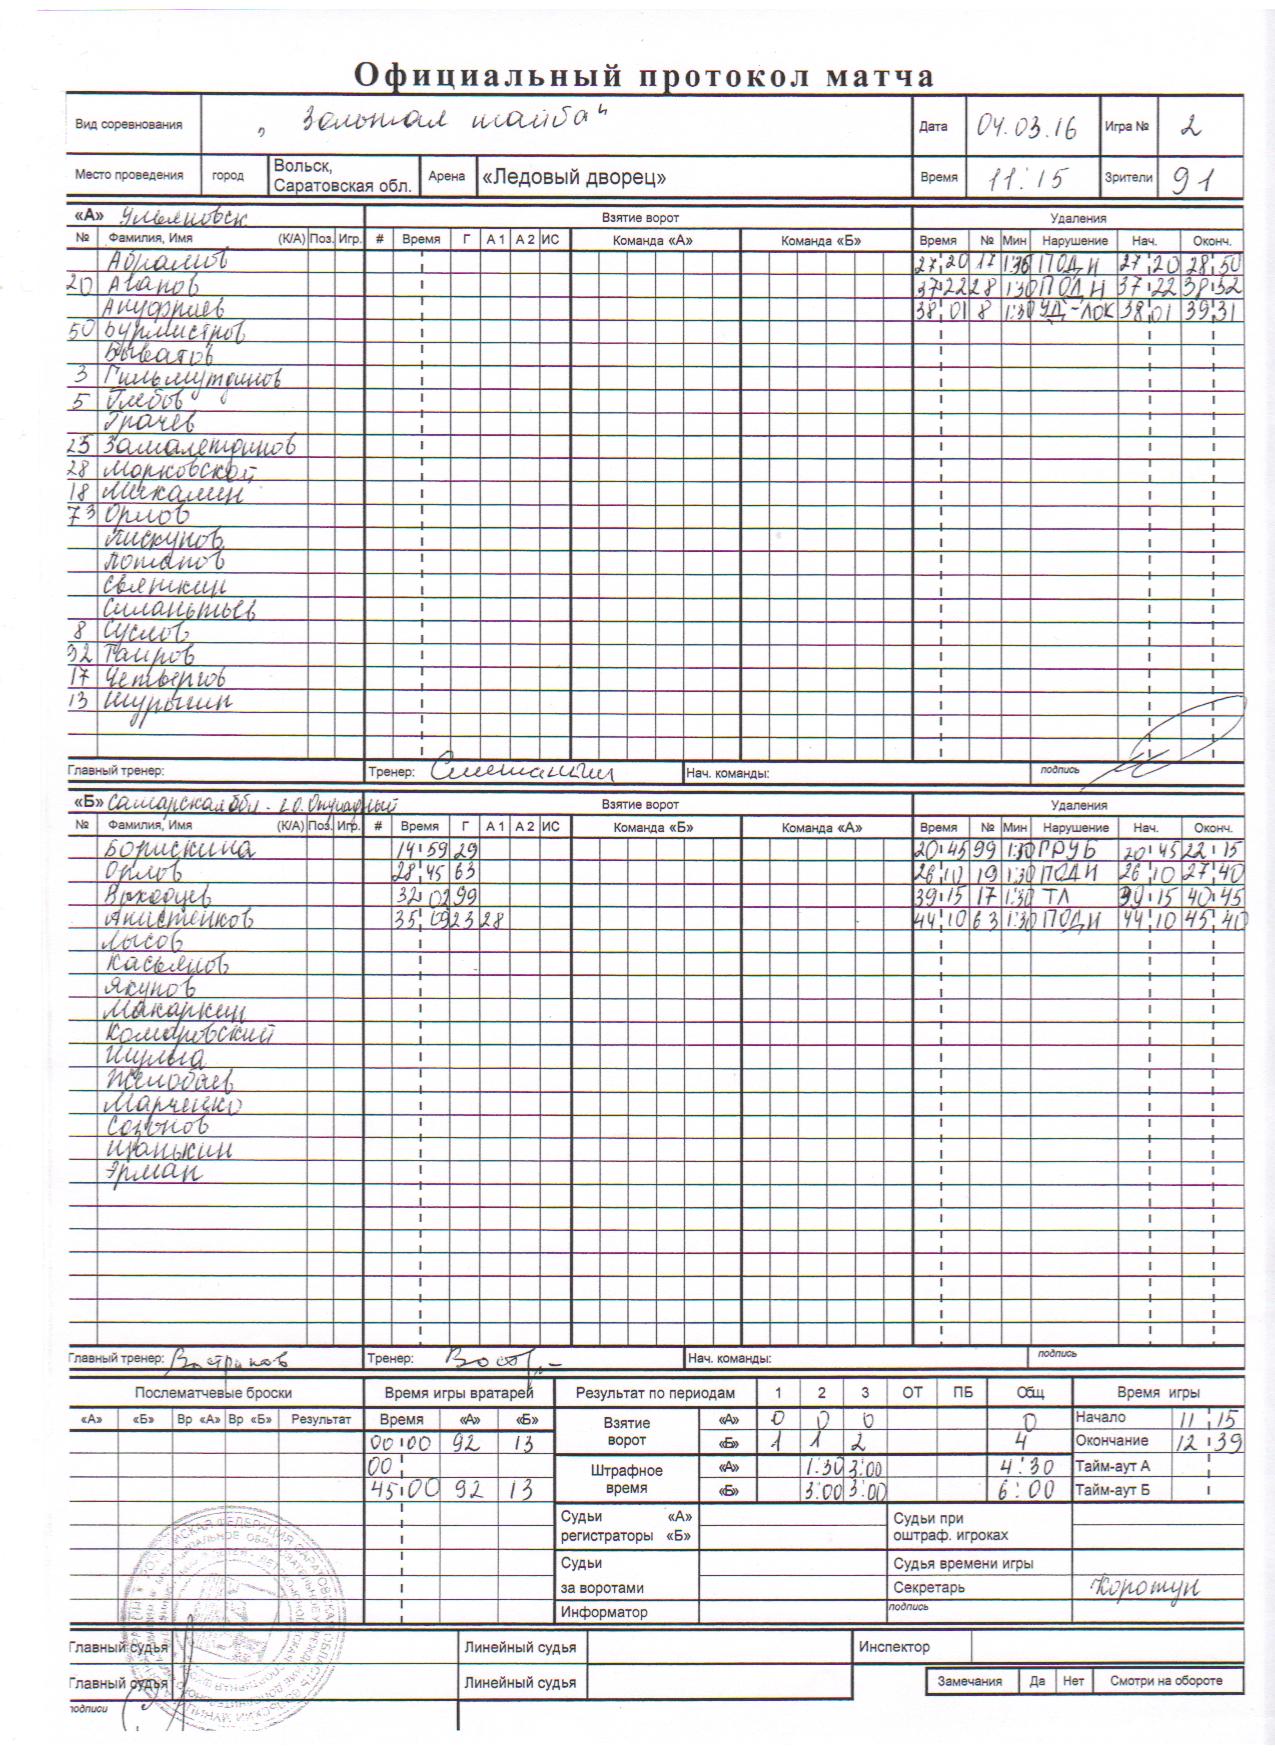 Официальный протокол матча
Вид соревнования „Золотая шайба" Дата 04.03.16 Игра № 2
Место проведения город Вольск, Саратовская обл. Арена «Ледовый дворец» Время 11:15 Зрители 91
«А» Ульяновск Взятие ворот Удаления
№ Фамилия, Имя (К/А) Поз. Игр. # Время Г А 1 А 2 ИС Команда «А» Команда «Б» Время № Мин Нарушение Нач. Оконч.
Абрамов 27:20 17 1:30 ПОДН 27:20 28:50
20 Агапов 37:22 28 1:30 ПОДН 37:22 38:52
Ануфриев 38:01 8 1:30 УД-ЛОК 38:01 39:31
50 Бурмистров
Быватов
3 Гильмутдинов
5 Глебов
Грачев
25 Замалетдинов
28 Марковской
18 Микалин
73 Орлов
Пискунов
Потапов
Святкин
Силантьев
8 Суслов
92 Таиров
17 Четвергов
13 Шурыгин
Главный тренер: Тренер: Нач. команды: подпись
«Б» Самарская обл - г.о. Отрадный Взятие ворот Удаления
№ Фамилия, Имя (К/А) Поз. Игр. # Время Г А 1 А 2 ИС Команда «Б» Команда «А» Время № Мин Нарушение Нач. Оконч.
Борискина 14:59 29 20:45 99 1:30 ГРУБ 20:45 22:15
Орлов 28:45 63 26:10 19 1:30 ПОДН 26:10 27:40
Выходцев 32:02 99 39:15 17 1:30 ТЛ 39:15 40:45
Анистенков 35:09 23 28 44:10 63 1:30 ПОДН 44:10 45:40
Лысов
Касьянов
Якупов
Макаркин
Комаровский
Шульга
Желобаев
Марченко
Созонов
Щанькин
Эрман
Главный тренер: Востриков Тренер: Нач. команды: подпись
Послематчевые броски Время игры вратарей Результат по периодам 1 2 3 ОТ ПБ Общ Время игры
«А» «Б» Вр «А» Вр «Б» Результат Время «А» «Б» Взятие ворот «А» 0 0 0 0 Начало 11:15
00:00 92 13 «Б» 1 1 2 4 Окончание 12:39
00 Штрафное время «А» 1:30 3:00 4:30 Тайм-аут А
45:00 92 13 «Б» 3:00 3:00 6:00 Тайм-аут Б
Судьи «А» Судьи при
регистраторы «Б» оштраф. игроках
Судьи Судья времени игры
за воротами Секретарь Коротун
Информатор подпись
Главный судья Линейный судья Инспектор
Главный судья Линейный судья Замечания Да Нет Смотри на обороте
подписи